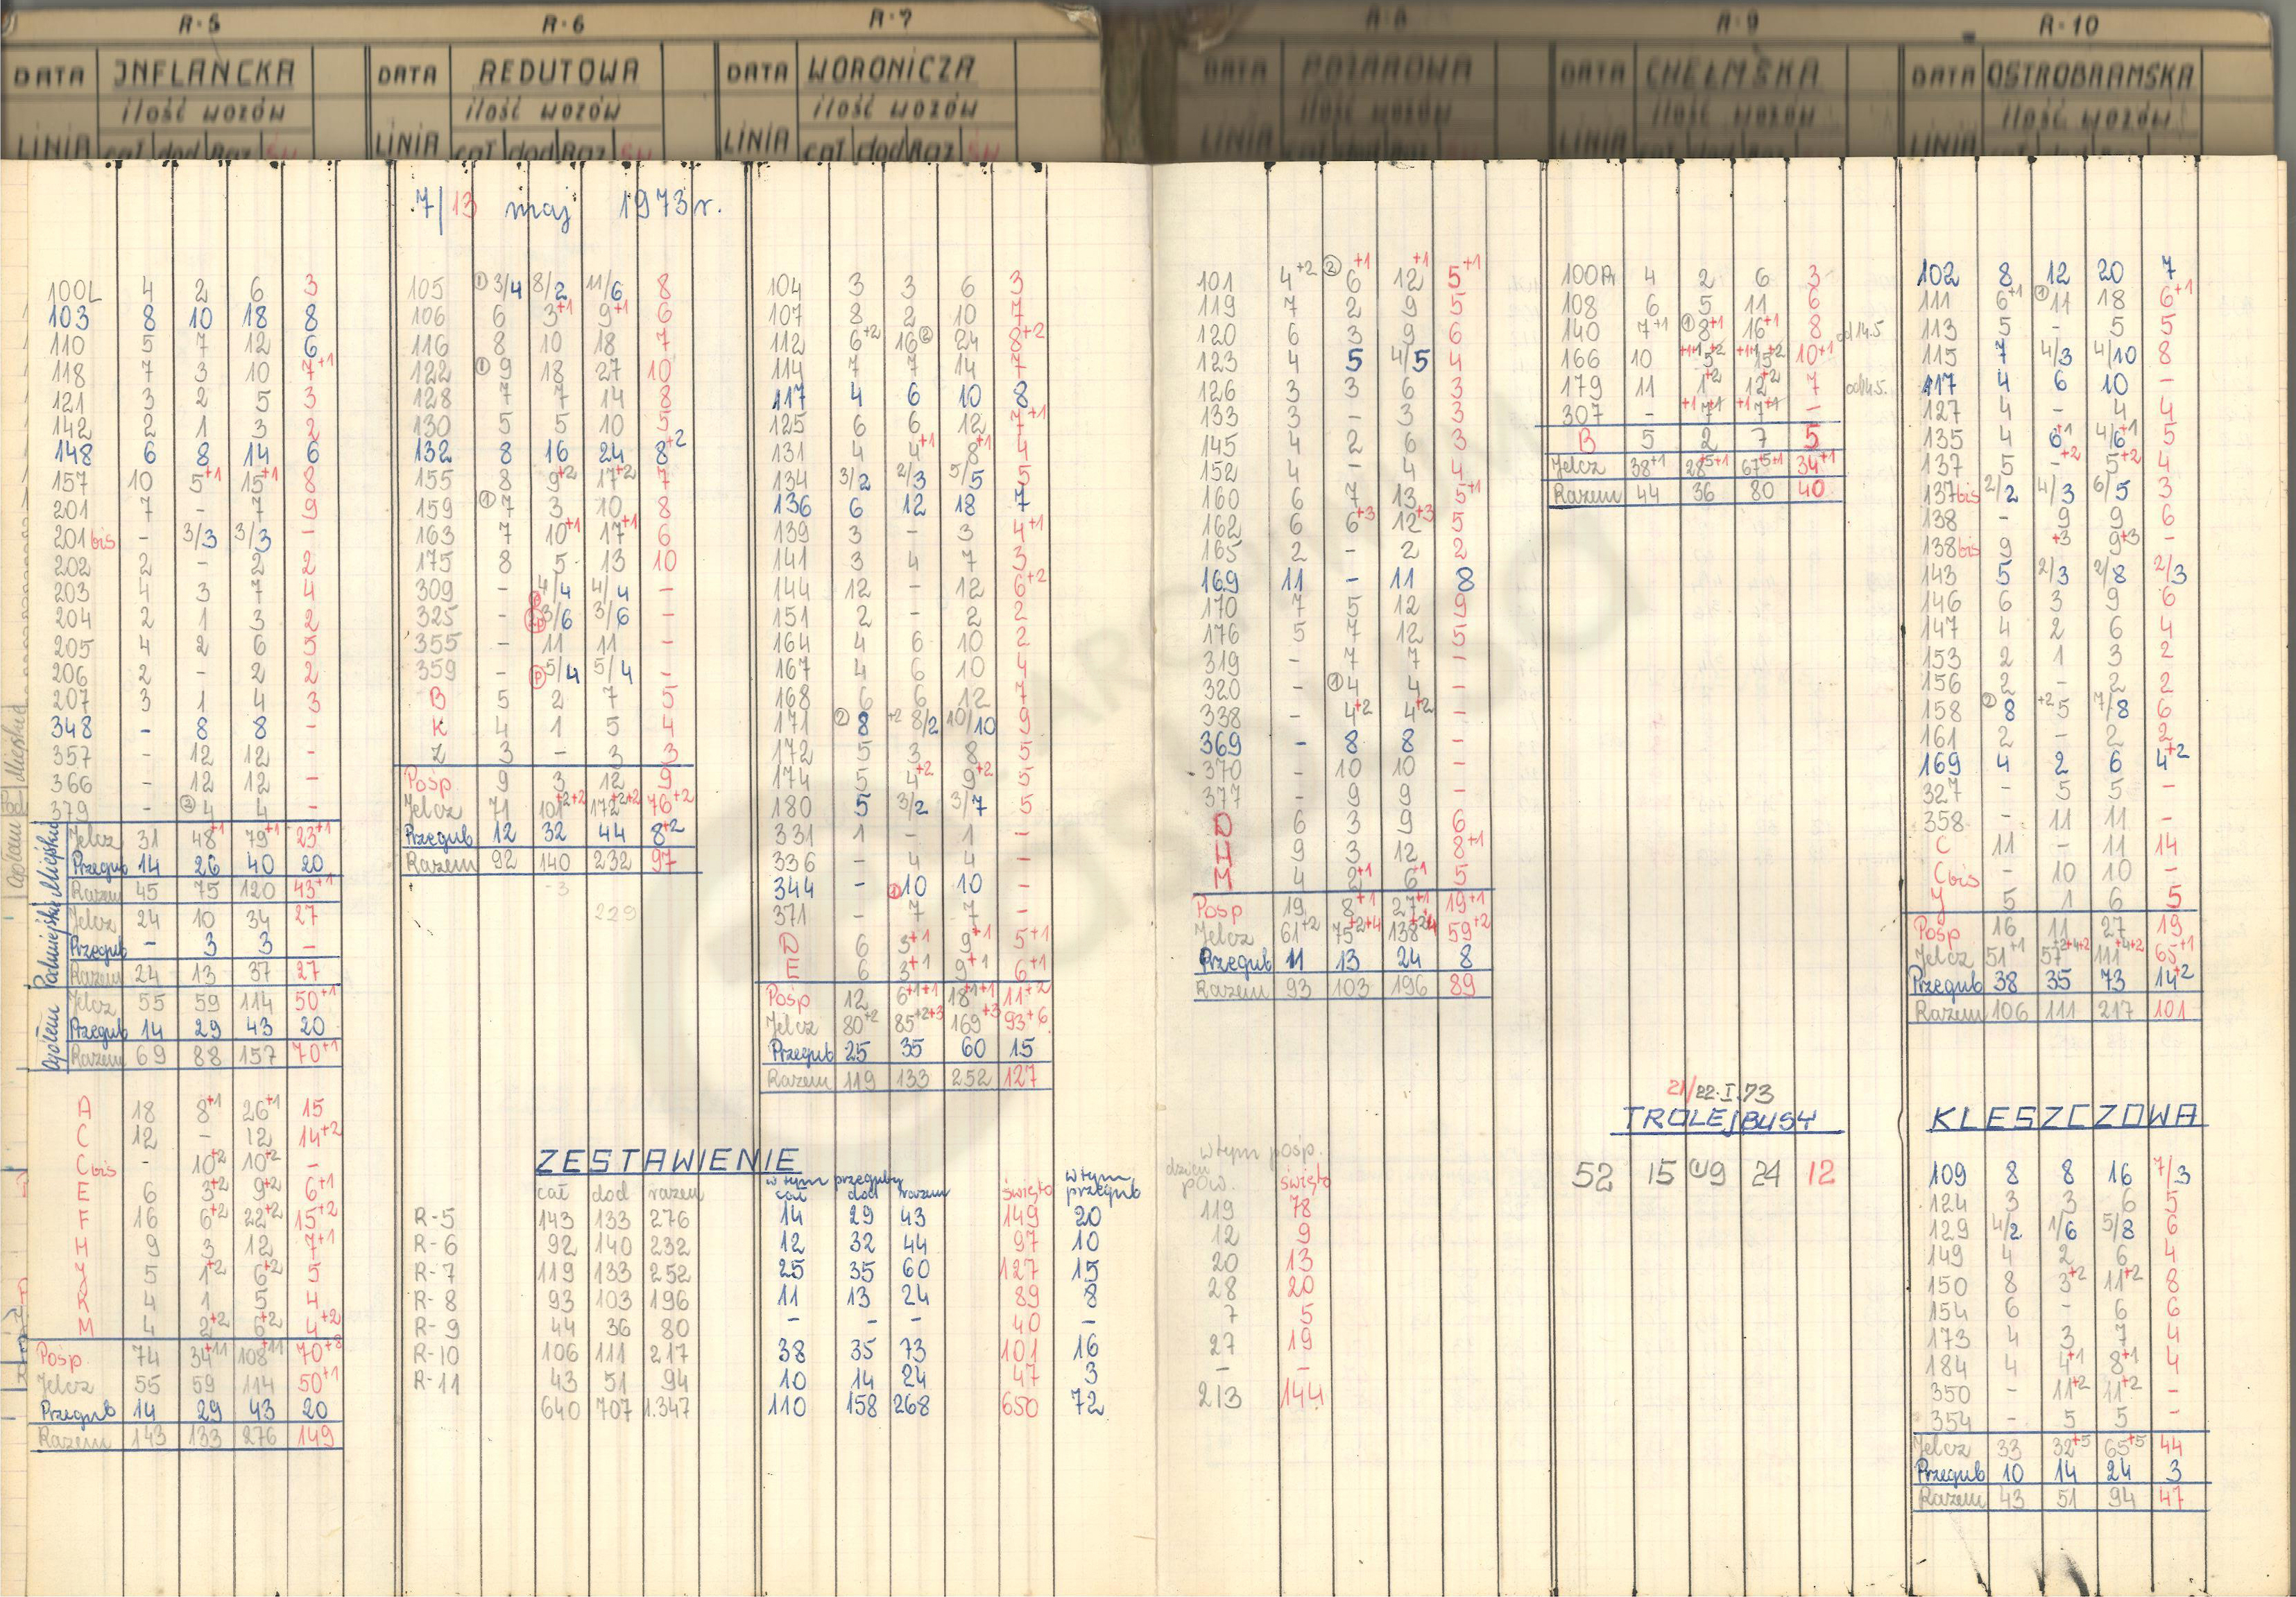 R-5
DATA INFLANCKA
ilość wozów
LINIA cał dod Raz Św
100L 4 2 6 3
103 8 10 18 8
110 5 7 12 6
118 7 3 10 7+1
121 3 2 5 3
142 2 1 3 2
148 6 8 14 6
157 10 5+1 15+1 8
201 7 - 7 9
201bis - 3/3 3/3 -
202 2 - 2 2
203 4 3 7 4
204 2 1 3 2
205 4 2 6 5
206 2 - 2 2
207 3 1 4 3
348 - 8 8 -
357 - 12 12 -
366 - 12 12 -
379 - ② 4 4 -
Miejskie
Jelcz 31 48+1 79+1 23+1
Przegub 14 26 40 20
Razem 45 75 120 43+1
Podmiejskie
Jelcz 24 10 34 27
Przegub - 3 3 -
Razem 24 13 37 27
Ogółem
Jelcz 55 59 114 50+1
Przegub 14 29 43 20
Razem 69 88 157 70+1
A 18 8+1 26+1 15
C 12 - 12 14+2
Cbis - 10+2 10+2 -
E 6 3+2 9+2 6+1
F 16 6+2 22+2 15+2
H 9 3 12 7+1
Y 5 1+2 6+2 5
K 4 1 5 4
M 4 2+2 6+2 4+2
Pośp 74 34+11 108+11 70+8
Jelcz 55 59 114 50+1
Przegub 14 29 43 20
Razem 143 133 276 149
R-6
DATA REDUTOWA
ilość wozów
LINIA cał dod Raz Św
7/13 maj 1973 r.
105 ① 3/4 8/2 11/6 8
106 6 3+1 9+1 6
116 8 10 18 7
122 ① 9 18 27 10
128 7 7 14 8
130 5 5 10 5
132 8 16 24 8+2
155 8 9+2 17+2 7
159 ① 7 3 10 8
163 7 10+1 17+1 6
175 8 5 13 10
309 - 4/4 4/4 -
325 - 3/6 3/6 -
355 - 11 11 -
359 - Ⓟ 5/4 5/4 -
B 5 2 7 5
K 4 1 5 4
Z 3 - 3 3
Pośp 9 3 12 9
Jelcz 71 101+2+2 172+2+2 76+2
Przegub 12 32 44 8+2
Razem 92 140 232 97
-3
229
R-7
DATA WORONICZA
ilość wozów
LINIA cał dod Raz Św
104 3 3 6 3
107 8 2 10 7
112 6+2 16② 24 8+2
114 7 7 14 7
117 4 6 10 8
125 6 6 12 7+1
131 4 4+1 8+1 4
134 3/2 2/3 5/5 5
136 6 12 18 7
139 3 - 3 4+1
141 3 4 7 3
144 12 - 12 6+2
151 2 - 2 2
164 4 6 10 2
167 4 6 10 4
168 6 6 12 7
171 ② 8 +2 8/2 10/10 9
172 5 3 8 5
174 5 4+2 9+2 5
180 5 3/2 3/7 5
331 1 - 1 -
336 - 4 4 -
344 - ① 10 10 -
371 - 7 7 -
D 6 3+1 9+1 5+1
E 6 3+1 9+1 6+1
Pośp 12 6+1+1 18+1+1 11+2
Jelcz 80+2 85+2+3 169+3 93+6
Przegub 25 35 60 15
Razem 119 133 252 127
ZESTAWIENIE
w tym przeguby w tym
cał dod razem cał dod razem święto przegub
R-5 143 133 276 14 29 43 149 20
R-6 92 140 232 12 32 44 97 10
R-7 119 133 252 25 35 60 127 15
R-8 93 103 196 11 13 24 89 8
R-9 44 36 80 - - - 40 -
R-10 106 111 217 38 35 73 101 16
R-11 43 51 94 10 14 24 47 3
640 707 1.347 110 158 268 650 72
R-8
DATA POŻAROWA
ilość wozów
LINIA cał dod Raz Św
101 4+2 ② 6+1 12+1 5+1
119 7 2 9 5
120 6 3 9 6
123 4 5 4/5 4
126 3 3 6 3
133 3 - 3 3
145 4 2 6 3
152 4 - 4 4
160 6 7 13 5+1
162 6 6+3 12+3 5
165 2 - 2 2
169 11 - 11 8
170 7 5 12 9
176 5 7 12 5
319 - 7 7 -
320 - ① 4 4 -
338 - 4+2 4+2 -
369 - 8 8 -
370 - 10 10 -
377 - 9 9 -
D 6 3 9 6
H 9 3 12 8+1
M 4 2+1 6+1 5
Pośp 19 8+1 27+1 19+1
Jelcz 61+2 75+2+4 138+2+4 59+2
Przegub 11 13 24 8
Razem 93 103 196 89
w tym pośp.
dzień pow. święto
119 78
12 9
20 13
28 20
7 5
27 19
- -
213 144
R-9
DATA CHEŁMSKA
ilość wozów
LINIA cał dod Raz Św
100Pr 4 2 6 3
108 6 5 11 6
140 7+1 ① 8+1 16+1 8 od 14.5
166 10 15+2 10+1
179 11 1+2 12+2 7 od 14.5.
307 - 7+1 7+1 -
B 5 2 7 5
Jelcz 38+1 28+5+1 67+5+1 34+1
Razem 44 36 80 40
21/22.I.73
TROLEJBUSY
52 15 ① 9 24 12
R-10
DATA OSTROBRAMSKA
ilość wozów
LINIA cał dod Raz Św
102 8 12 20 7
111 6+1 ① 11 18 6+1
113 5 - 5 5
115 7 4/3 4/10 8
117 4 6 10 -
127 4 - 4 4
135 4 6+1 4/6+1 5
137 5 -+2 5+2 4
137bis 2/2 4/3 6/5 3
138 - 9 9 6
138bis 9 +3 9+3 -
143 5 2/3 2/8 2/3
146 6 3 9 6
147 4 2 6 4
153 2 1 3 2
156 2 - 2 2
158 ② 8 +2 5 7/8 6
161 2 - 2 2
169 4 2 6 4+2
327 - 5 5 -
358 - 11 11 -
C 11 - 11 14
Cbis - 10 10 -
Y 5 1 6 5
Pośp 16 11 27 19
Jelcz 51+1 57+2+4+2 111+4+2 65+1
Przegub 38 35 73 14+2
Razem 106 111 217 101
KLESZCZOWA
109 8 8 16 7/3
124 3 3 6 5
129 4/2 1/6 5/8 6
149 4 2 6 4
150 8 3+2 11+2 8
154 6 - 6 6
173 4 3 7 4
184 4 4+1 8+1 4
350 - 11+2 11+2 -
354 - 5 5 -
Jelcz 33 32+5 65+5 44
Przegub 10 14 24 3
Razem 43 51 94 47